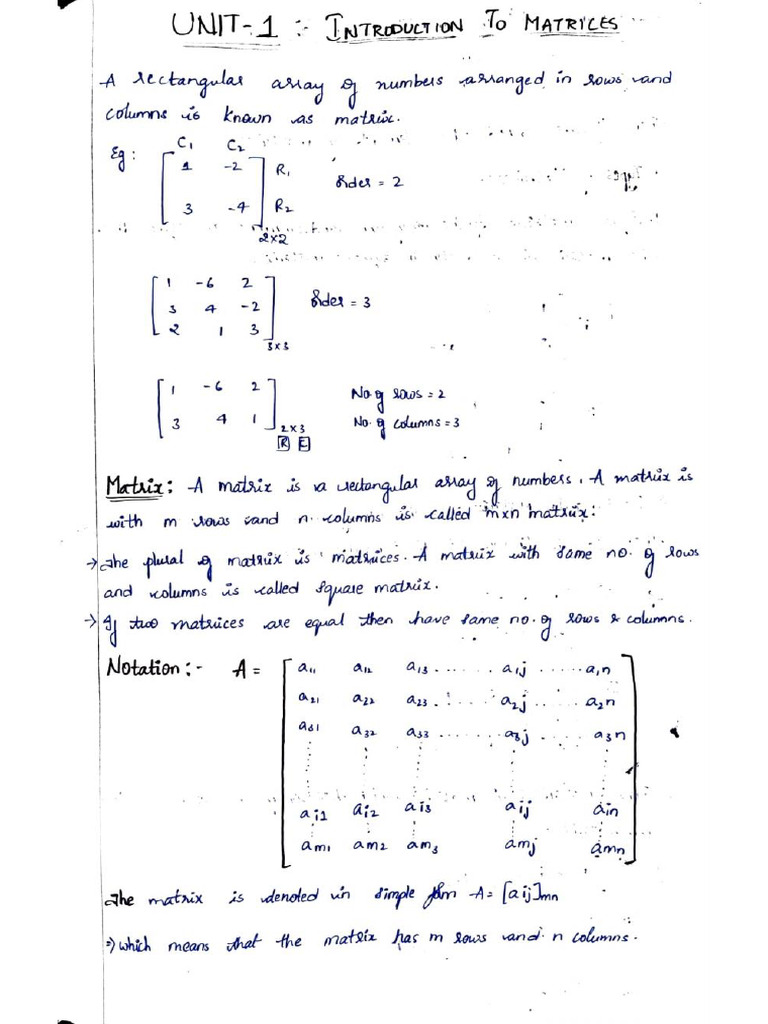 UNIT-1 :- INTRODUCTION TO MATRICES
A rectangular array of numbers arranged in rows and
columns is known as matrix.
Eg : C1 C2
[ 1 -2 ] R1
order = 2
[ 3 -4 ] R2
2×2
[ 1 -6 2 ]
order = 3
[ 3 4 -2 ]
[ 2 1 3 ]
3×3
[ 1 -6 2 ] No. of rows = 2
[ 3 4 1 ] 2×3 No. of columns = 3
R C
Matrix : A matrix is a rectangular array of numbers. A matrix is
with m rows and n columns is called m×n matrix.
→ The plural of matrix is matrices. A matrix with same no. of rows
and columns is called square matrix.
→ If two matrices are equal then have same no. of rows & columns.
Notation :- A = [ a11 a12 a13 ...... a1j ...... a1n ]
a21 a22 a23 ...... a2j ...... a2n
a31 a32 a33 ...... a3j ...... a3n
ai1 ai2 ai3 aij ain
am1 am2 am3 amj amn
The matrix is denoted in simple form A = [aij]mn
⇒ which means that the matrix has m rows and n columns.